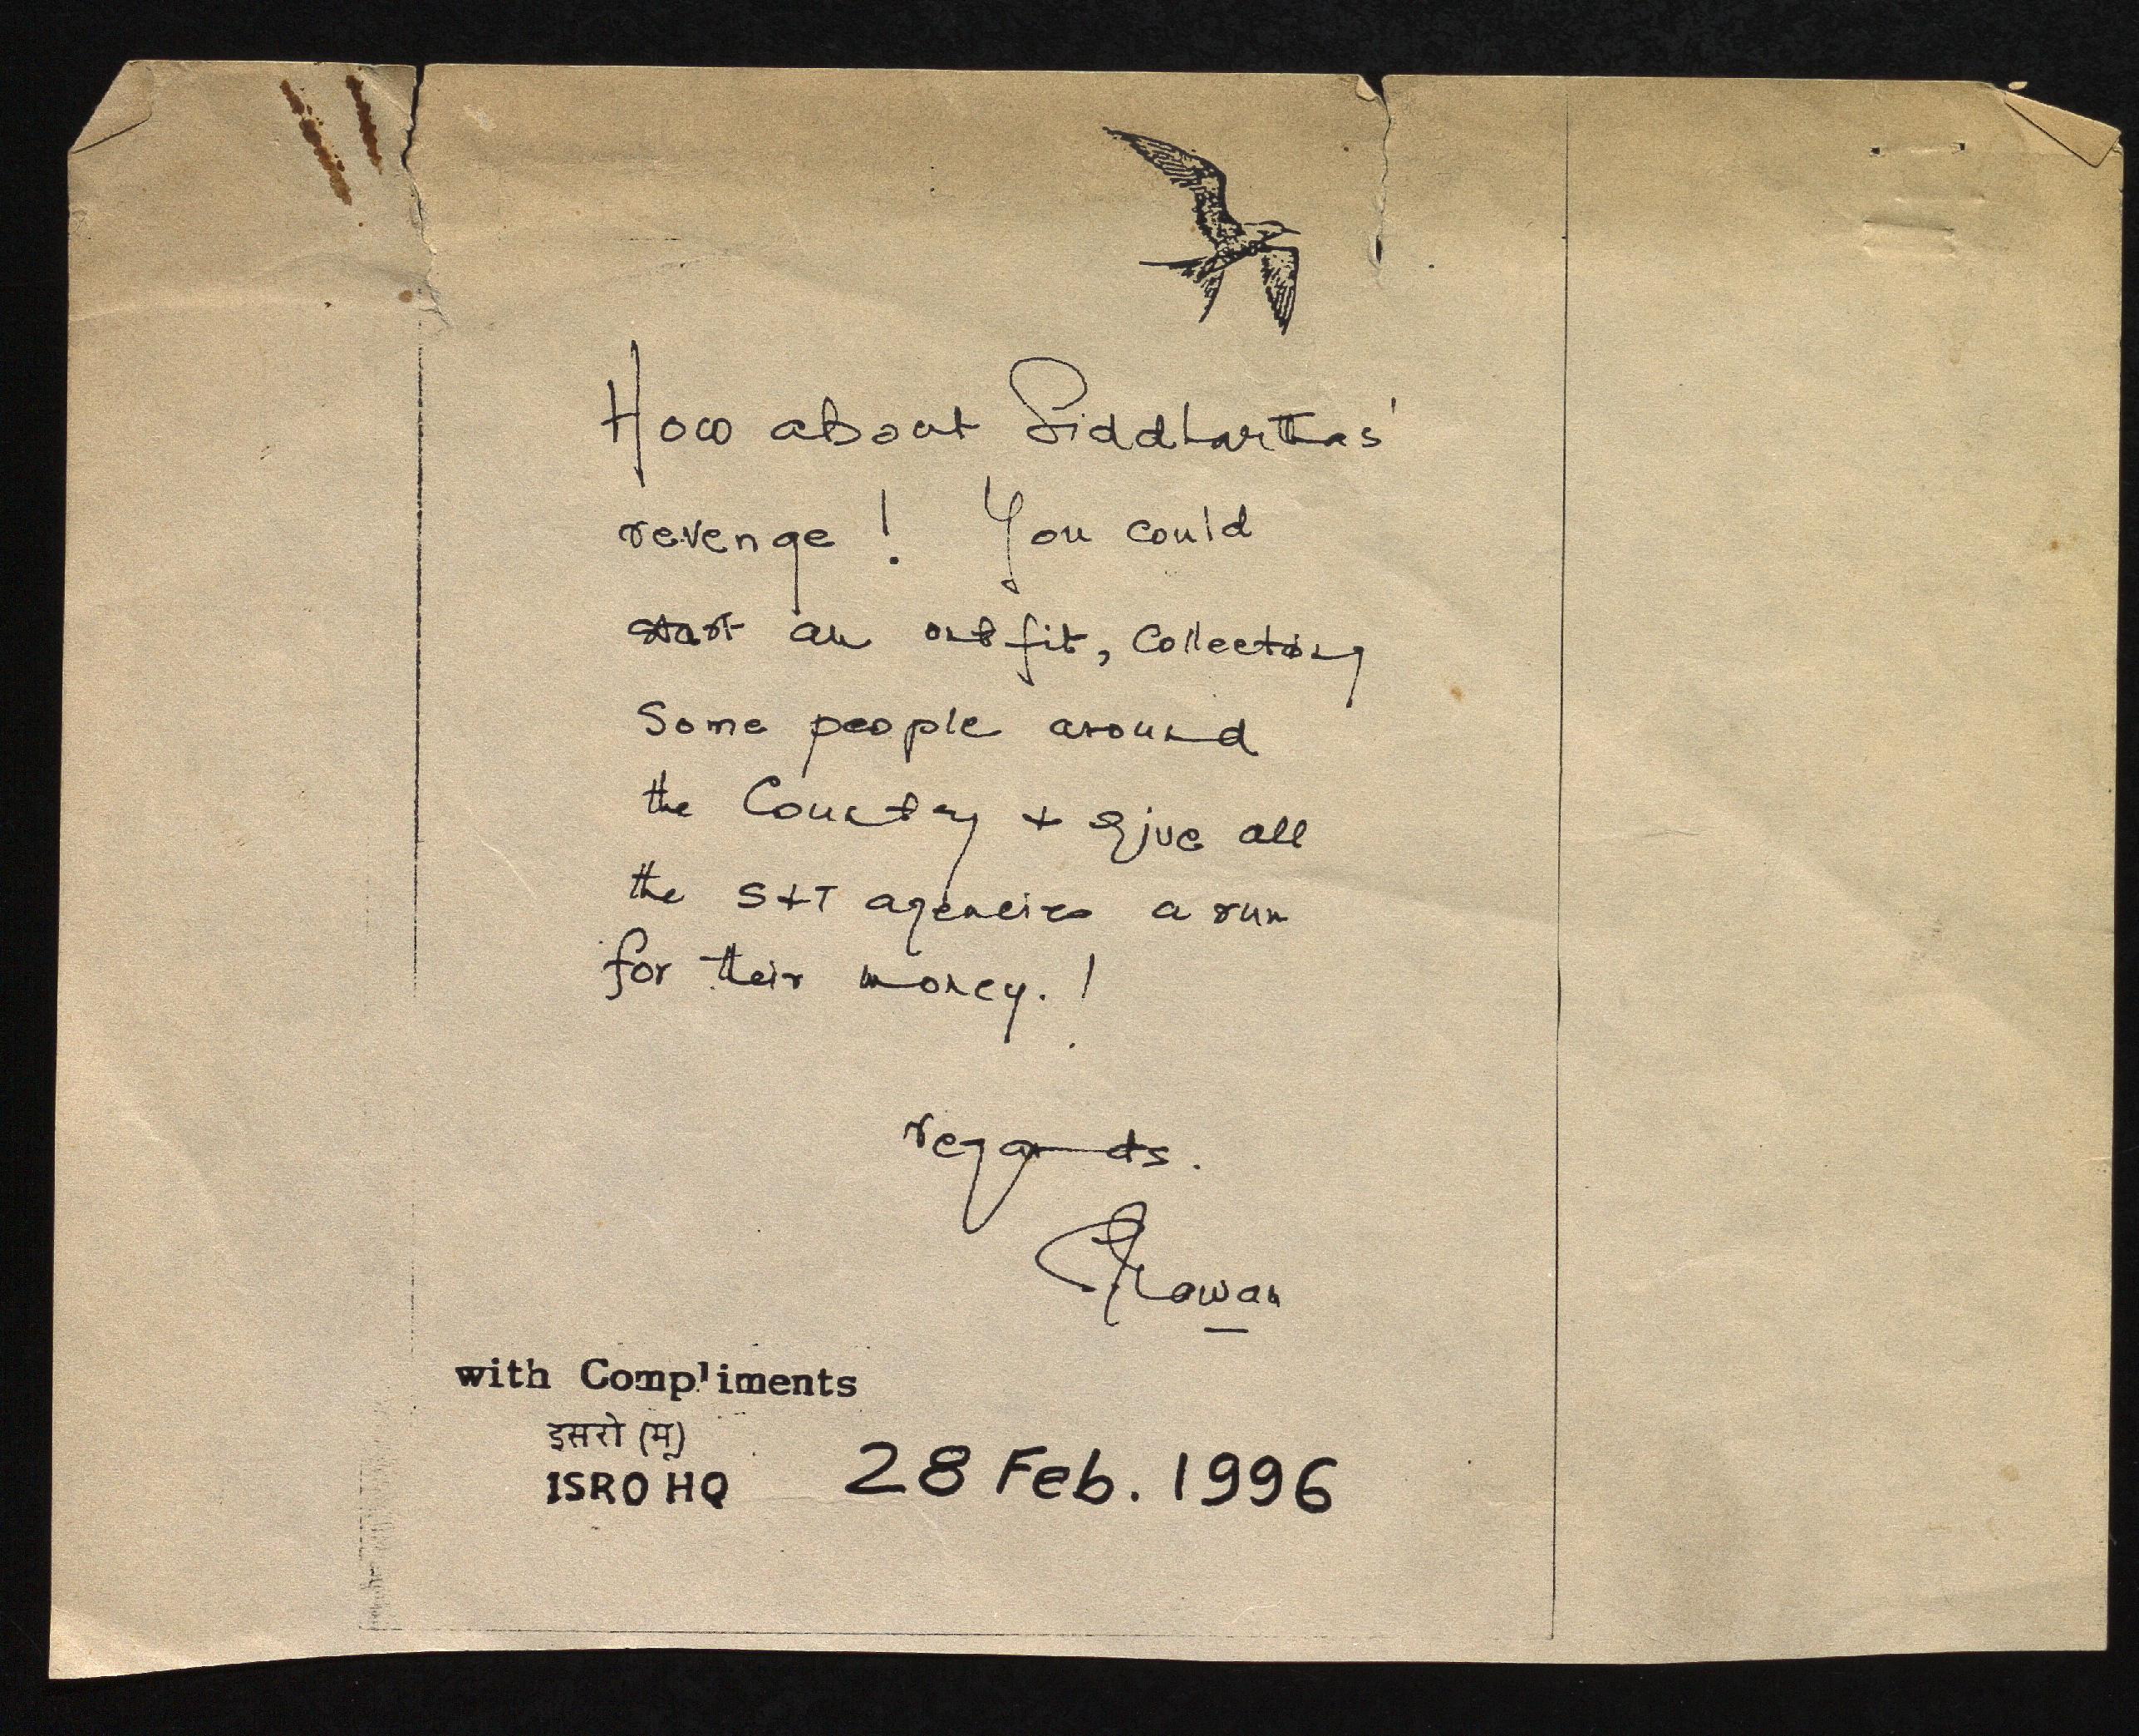 How about Siddharthas'
revenge! You could
start an outfit, collecting
Some people around
the Country + give all
the S+T agencies a run
for their money.!
regards.
with Compliments
इसरो (मू)
ISRO HQ
28 Feb. 1996